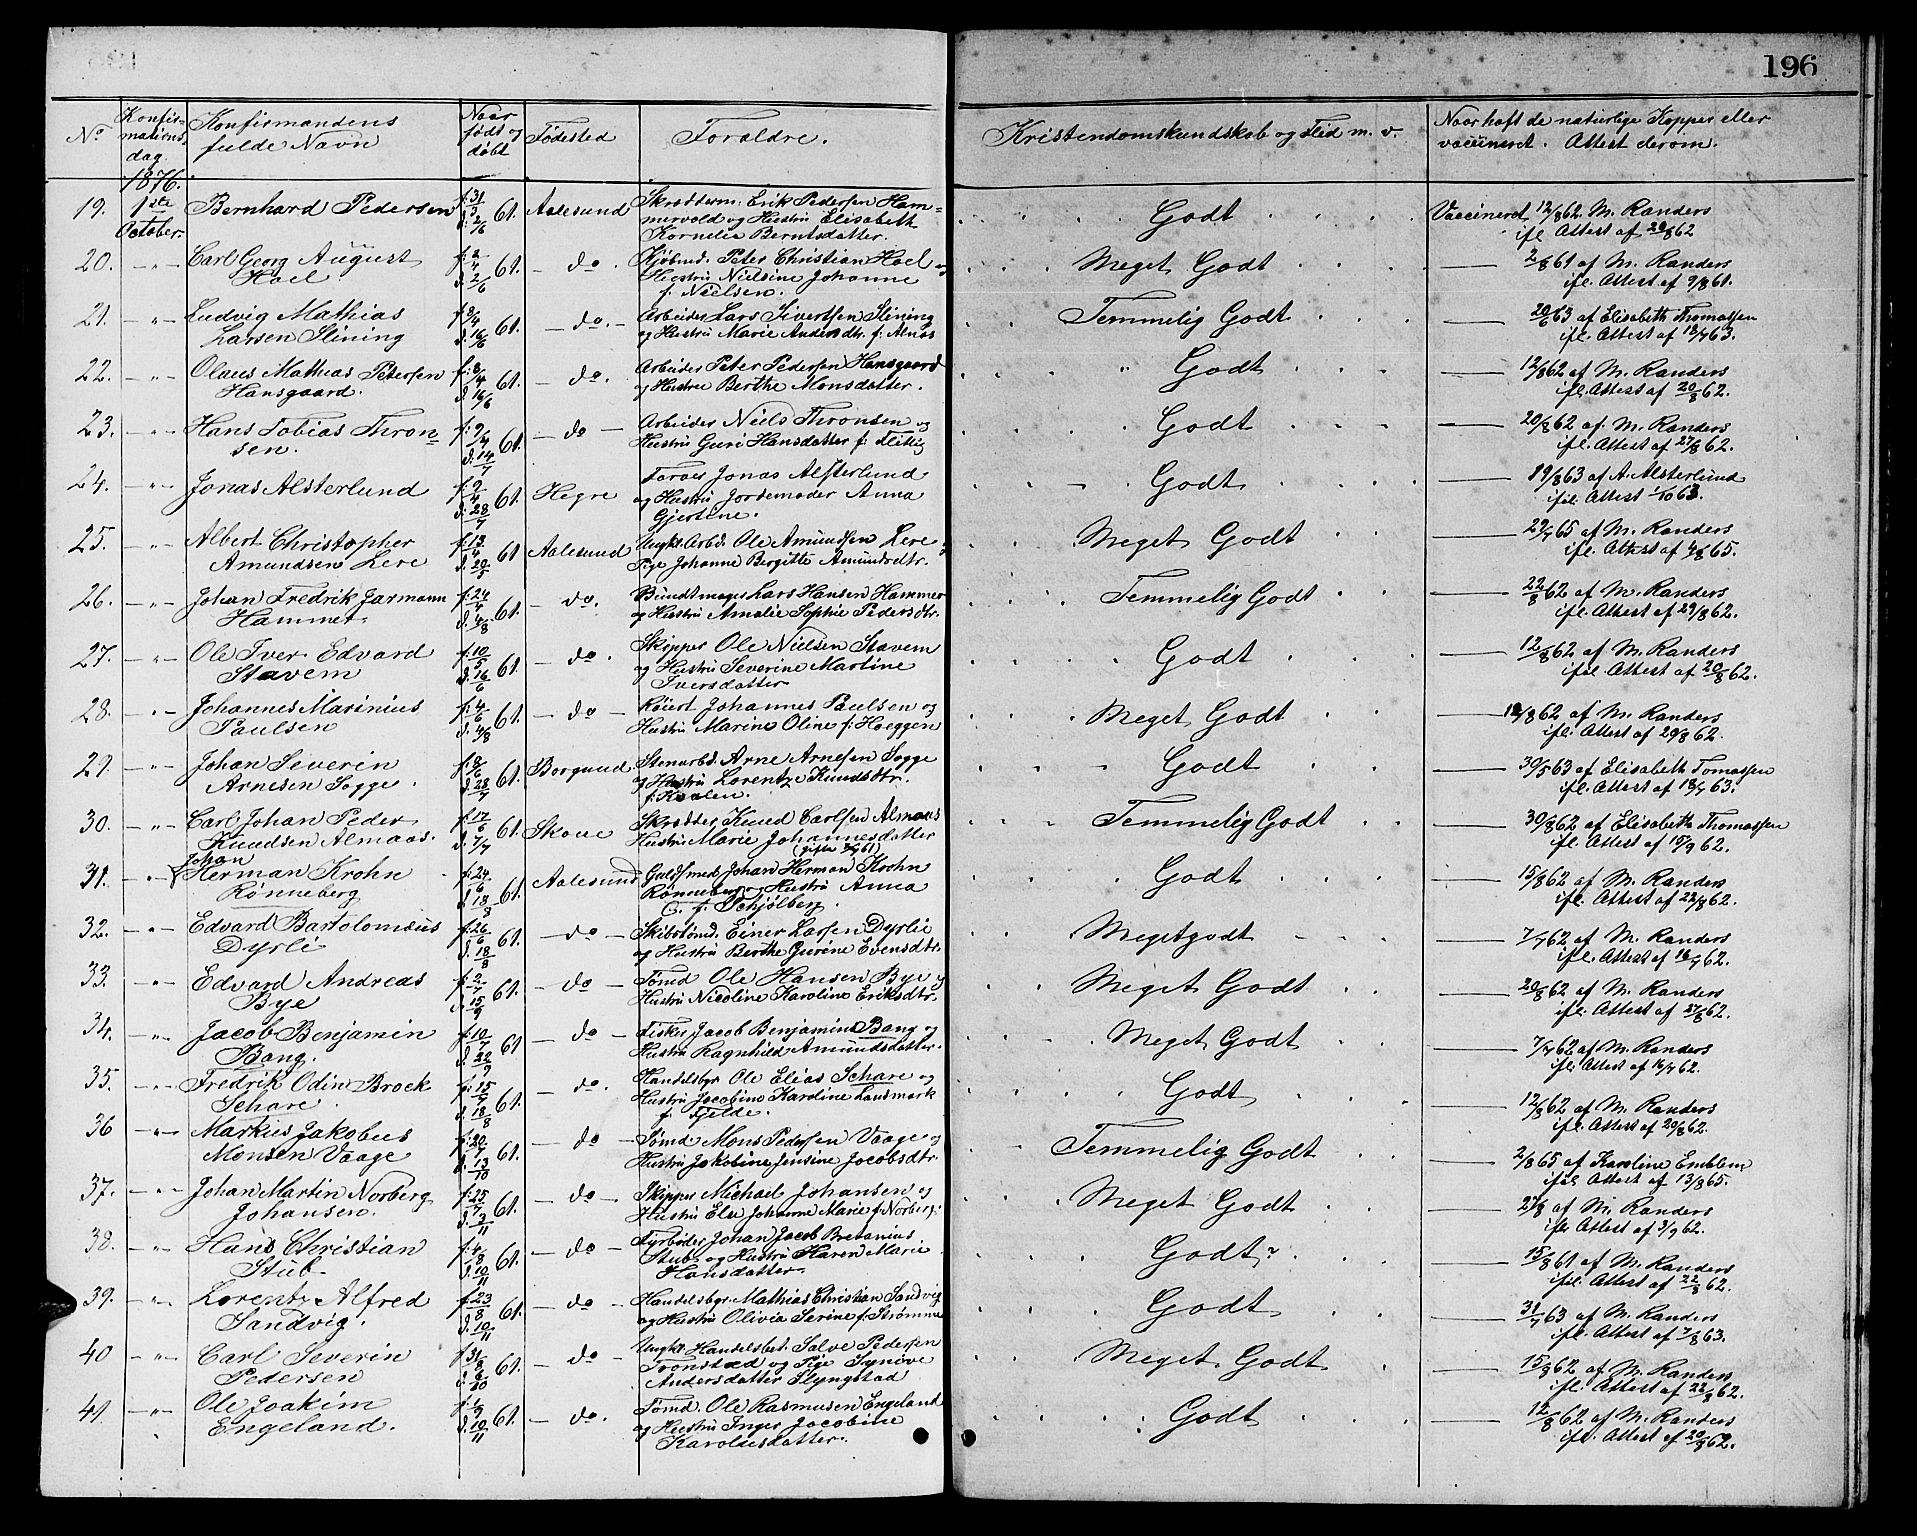 196
No Konfirmationsdag Konfirmandens fulde Navn Naar født og døbt Fødested Forældre. Kristendomskundskab og Flid m. v. Naar haft de naturlige Kopper eller vaccineret. Attest derom.
1876.
19. 1ste October. Bernhard Pedersen f. 31/3 d. 2/6 61. Aalesund Skrædderm. Erik Pedersen Hammervold og Hustru Elisabeth Kornelia Berntsdatter. Godt Vaccineret 12/8 62. M. Randers ifl. Attest af 20/8 62
20. -"- Carl Georg August Hoel f. 2/4 d. 2/6 61. - do. Kjøbmd. Peter Christian Hoel og Hustru Nielsine Johanne f. Nielsen. Meget Godt 2/8 61 af M. Randers ifl. Attest af 9/8 61.
21. -"- Ludvig Mathias Larsen Slining f. 3/4 d. 16/6 61. - do. - Arbeider Lars Sivertsen Slining og Hustru Marie Andersdtr. f. Alnæs Temmelig Godt 20/6 63 af Elisabeth Thomassen ifl. Attest af 18/7 63.
22. -"- Olaus Mathias Petersen Hansgaard. f. 8/4 d. 16/6 61. - do. Arbeider Peter Pedersen Hansgaard og Hustru Berthe Monsdatter. " Godt 12/8 62 af M. Randers ifl. Attest af 20/8 62.
23. -"- Hans Tobias Thronsen. f. 9/4 d. 14/7 61. - do - Arbeider Niels Thronsen og Hustru Guri Hansdatter f. Flittig Godt 20/8 62 af M. Randers ifl. Attest af 27/8 62.
24. -"- Jonas Alsterlund f. 9/4 d. 28/7 61. Hegre Farver Jonas Alsterlund og Hustru Jordemoder Anna Gjertine. Godt 19/8 63 af A. Alsterlund ifl. Attest 1/10 63.
25. -"- Albert Christopher Amundsen Lere f. 13/4 d. 20/5 61 Aalesund Ungk. Arbd. Ole Amundsen Lere og Pige Johanne Bergitte Amundsdtr. Meget Godt 29/7 65 af M. Randers ifl. Attest af 4/8 65.
26. -"- Johan Fredrik Jarmann Hammer f. 24/4 d. 4/8 61. - do. Bundtmager Lars Hansen Hammer og Hustru Amalie Sophie Pedersdtr. Temmelig Godt 22/8 62 af M. Randers ifl. Attest af 29/8 62.
27. -"- Ole Iver Edvard Stavem f. 10/5 d. 16/6 61. - do. Skipper Ole Nielsen Stavem og Hustru Severine Martine Iversdatter Godt 12/8 62 af M. Randers ifl. Attest af 20/8 62.
28. -"- Johannes Marinius Paulsen f. 4/6 d. 4/8 61. - do - Johannes Paulsen og Hustru Marine Oline f. Hoeggen Meget Godt 12/8 62 af M. Randers ifl. Attest af 20/8 62.
29. -"- Johan Severin Arnesen Sogge. f. 8/6 d. 28/7 61. Borgund Stenarbd. Arne Arnesen Sogge og Hustru Lorentze Knudsdtr. f. Kvalen. Godt 30/5 63 af Elisabeth Tomassen ifl. Attest af 18/7 63.
30. -"- Carl Johan Peder Knudsen Almaas. f. 17/6 d. 7/7 61. Skoue Skrædder Knud Carlsen Almaas Hustru Marie Johannesdatter Temmelig Godt 30/8 62 af Elisabeth Thomassen ifl. Attest af 10/9 62.
31. -"- Johan Herman Krohn Rønneberg f. 24/6 d. 18/8 61. Aalesund Guldsmed Johan Herman Krohn Rønneberg og Hustru Anna C. f. Schjølberg. Godt 15/8 62 af M. Randers ifl. Attest af 22/8 62.
32. -"- Edvard Bartolomæus Dyrli f. 26/6 d. 18/8 61. - do - Skibstømd. Einer Larsen Dyrlie og Hustru Berthe Gurine Evensdtr. Megetgodt 7/7 62 af M. Randers ifl. Attest af 16/7 62.
33. -"- Edvard Andreas Bye f. 2/7 d. 15/9 61. - do - Tømd Ole Hansen Bye og Hustru Nicoline Karoline Eriksdtr. Meget Godt 20/8 62 af M. Randers ifl. Attest af 27/8 62.
34. -"- Jacob Benjamin Bang. f. 10/7 d. 22/9 61 - do - Fisker Jacob Benjamins Bang og Hustru Ragnhild Amundsdatter. Meget Godt 7/7 62 af M. Randers ifl. Attest af 16/7 62.
35. -"- Fredrik Odin Brock Schare. f. 15/7 d. 18/8 61. - do. Handelsbgr Ole Elias Schare og Hustru Jacobine Karoline Landmark f. Fjelde. Godt 12/8 62 af M. Randers ifl. Attest af 20/8 62.
36 -"- Markus Jakobus Monsen Vaage f. 20/7 d. 13/10 61. - do - Tømd Mons Pedersen Vaage og Hustru Jakobine Jensine Jacobsdtr. Temmelig Godt 2/8 65 af Karoline Emblem ifl. Attest af 13/8 65.
37. -"- Johan Martin Norberg Johansen. f. 25/7 d. 3/11 61. - do - Skipper Michael Johansen og Hustru Else Johanne Marie f. Norberg. Meget Godt 27/8 af M. Randers ifl. Attest af 3/9 62.
38. -"- Hans Christian Stub. f. 4/8 d. 10/11 61. - do - Fyrbøder Johan Jacob Bretanius Stub og Hustru Karen Marie Hansdatter. Godt. 15/8 61 af M. Randers ifl. Attest af 22/8 62.
39. -"- Lorentz Alfred Sandvig. f. 23/8 d. 10/11 61. - do - Handelsbgr. Mathias Christian Sandvig og Hustru Olivia Serine f. Strømme Godt 31/7 63 af M. Randers ifl. Attest af 7/8 63.
40 -"- Carl Severin Pedersen f. 31/8 d. 6/10 61. - do - Ungk. Handelsbet. Salve Pedersen Tronstad og Pige Synøve Andersdatter Slyngstad Meget Godt 15/8 62 af M. Randers ifl. Attest af 22/8 62.
41 -"- Ole Joakim Engeland. d. 10/11 61. - do. Tømd. Ole Rasmusen Engeland og Hustru Inger Jacobine Karolusdatter. Godt 12/8 62 af M. Randers ifl. Attest af 20/8 62.